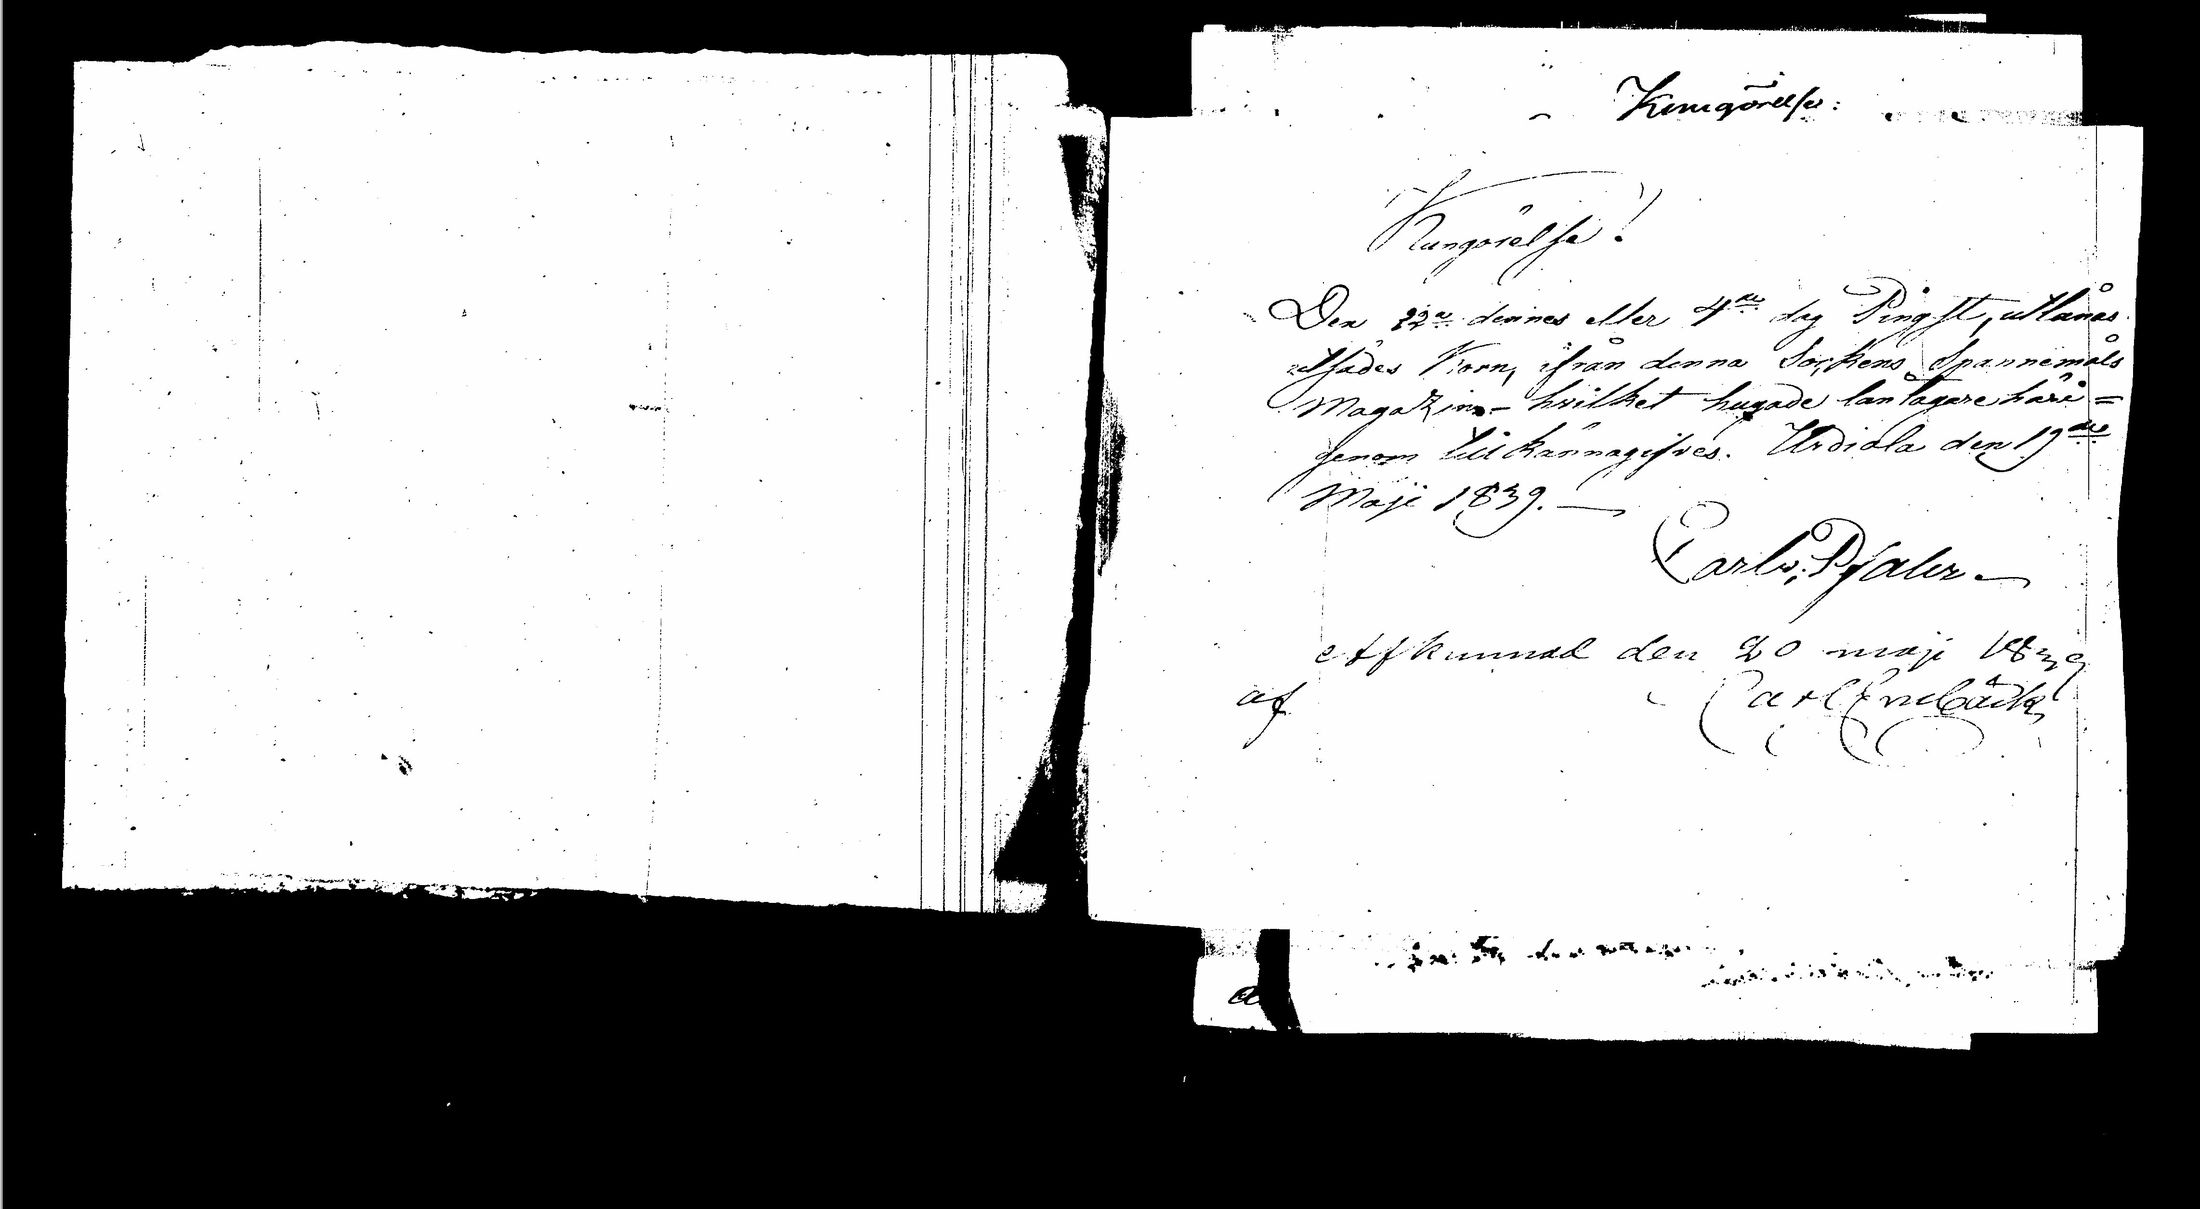 Kungörelse:
Kungörelse!
Den 22a dennes eller 4de dag Pingst, utlånas
utsädes Korn, ifrån denna Sockens Spannemåls
Magazin – hvilket hugade låntagare häri=
genom tillkännagifves. Urdiala den 19de
Maji 1839. —
Carl Pfaler
Afkunnad den 20 maji 1839
af Carl Embäck